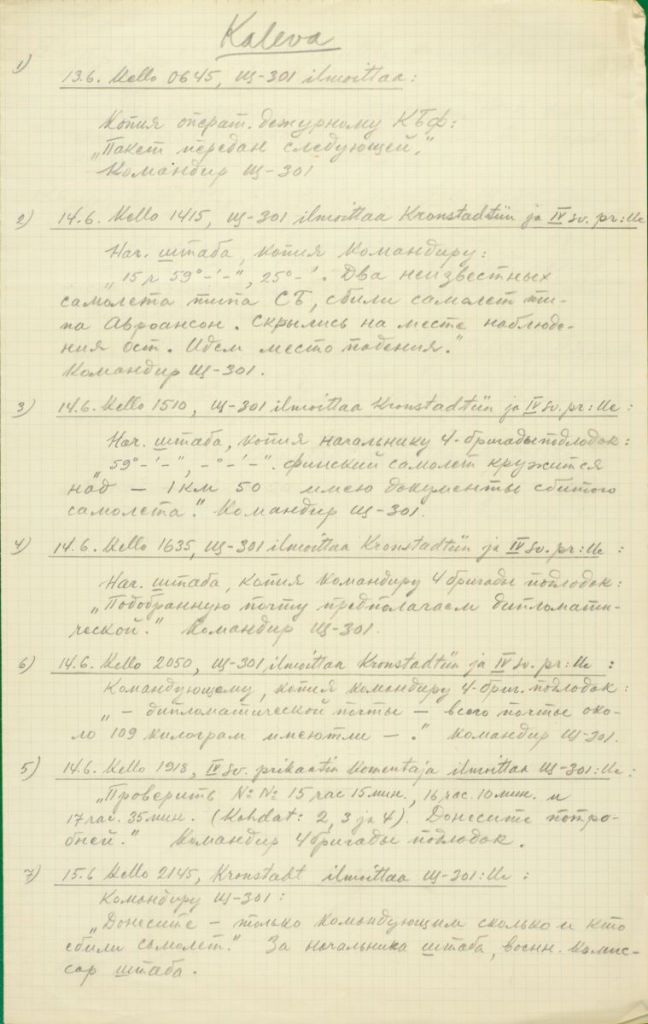 Kaleva
1) 13.6. Kello 0645, Щ-301 ilmoittaa:
Копия операт. дежурному КБФ:
„Пакет передан следующей."
Командир Щ-301
2) 14.6. Kello 1415, Щ-301 ilmoittaa Kronstadtiin ja IV Sv. pr:lle
Нач. штаба, копия Командиру:
„15 r 59°-'-", 25°-'. Два неизвестных
самолета типа СБ, сбили самолет ти-
па Авроансон. Скрылись на месте наблюде-
ния Ост. Идем место падения."
Командир Щ-301.
3) 14.6. Kello 1510, Щ-301 ilmoittaa Kronstadtiin ja IV Sv. pr:lle:
Нач. штаба, копия начальнику 4-бригады подлодок:
„59°-'-", -°-'-". финский самолет кружится
над — 1 км 50 имею документы сбитого
самолета." Командир Щ-301.
4) 14.6. Kello 1635, Щ-301 ilmoittaa Kronstadtiin ja IV Sv. pr:lle:
Нач. штаба, копия Командиру 4 бригады подлодок:
„Подобранную почту предполагаем дипломати-
ческой." Командир Щ-301.
6) 14.6. Kello 2050, Щ-301, ilmoittaa Kronstadtiin ja IV Sv. pr:lle:
Командующему, копия командиру 4-бриг. подлодок:
„— дипломатической почты — всего почты око-
ло 109 килограм имеютли —." Командир Щ-301.
5) 14.6. Kello 1918, IV Sv. prikaatin Komentaja ilmoittaa Щ-301:lle:
„Проверить №№ 15 час 15 мин, 16 час. 10 мин. и
17 час. 35 мин. (Kohdat: 2, 3 ja 4). Донесите подро-
бней." Командир 4 бригады подлодок.
7) 15.6 Kello 2145, Kronstadt ilmoittaa Щ-301:lle:
Командиру Щ-301:
„Донесите — только командующим сколько и кто
сбили самолет." За начальника штаба, военн. Комис-
сар штаба.